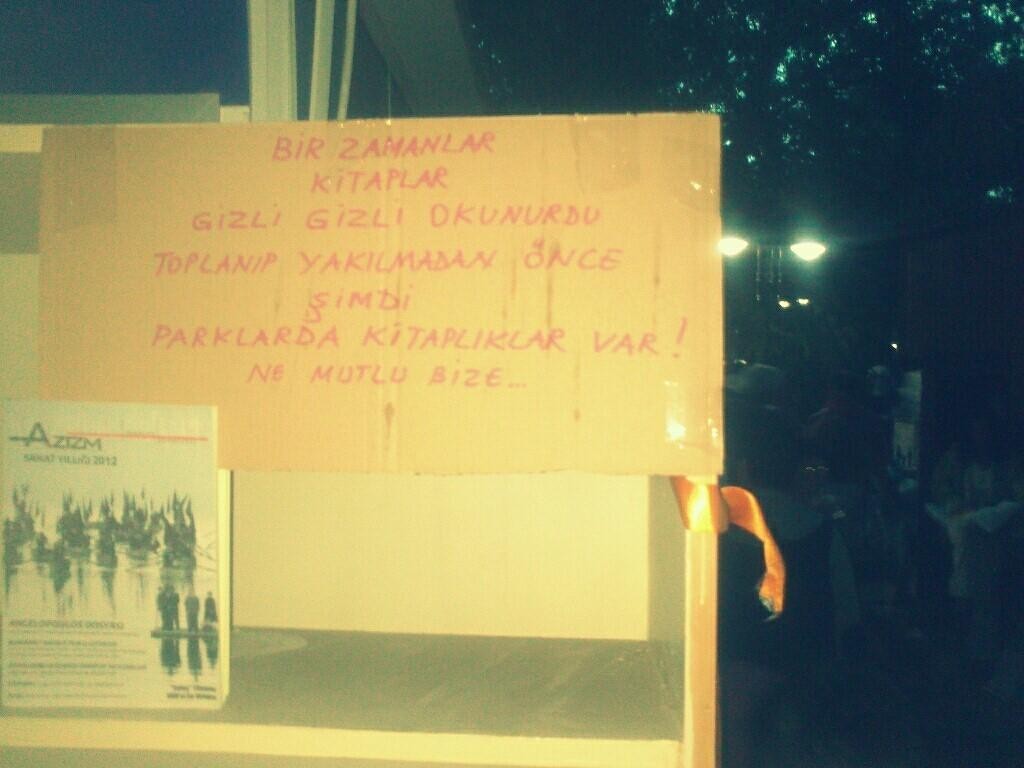 BİR ZAMANLAR
KİTAPLAR
GİZLİ GİZLİ OKUNURDU
TOPLANIP YAKILMADAN ÖNCE
ŞİMDİ
PARKLARDA KİTAPLIKLAR VAR!
NE MUTLU BİZE...
AZIZM
SANAT YILLIĞI 2012
ANGELOPOULOS DOSYASI